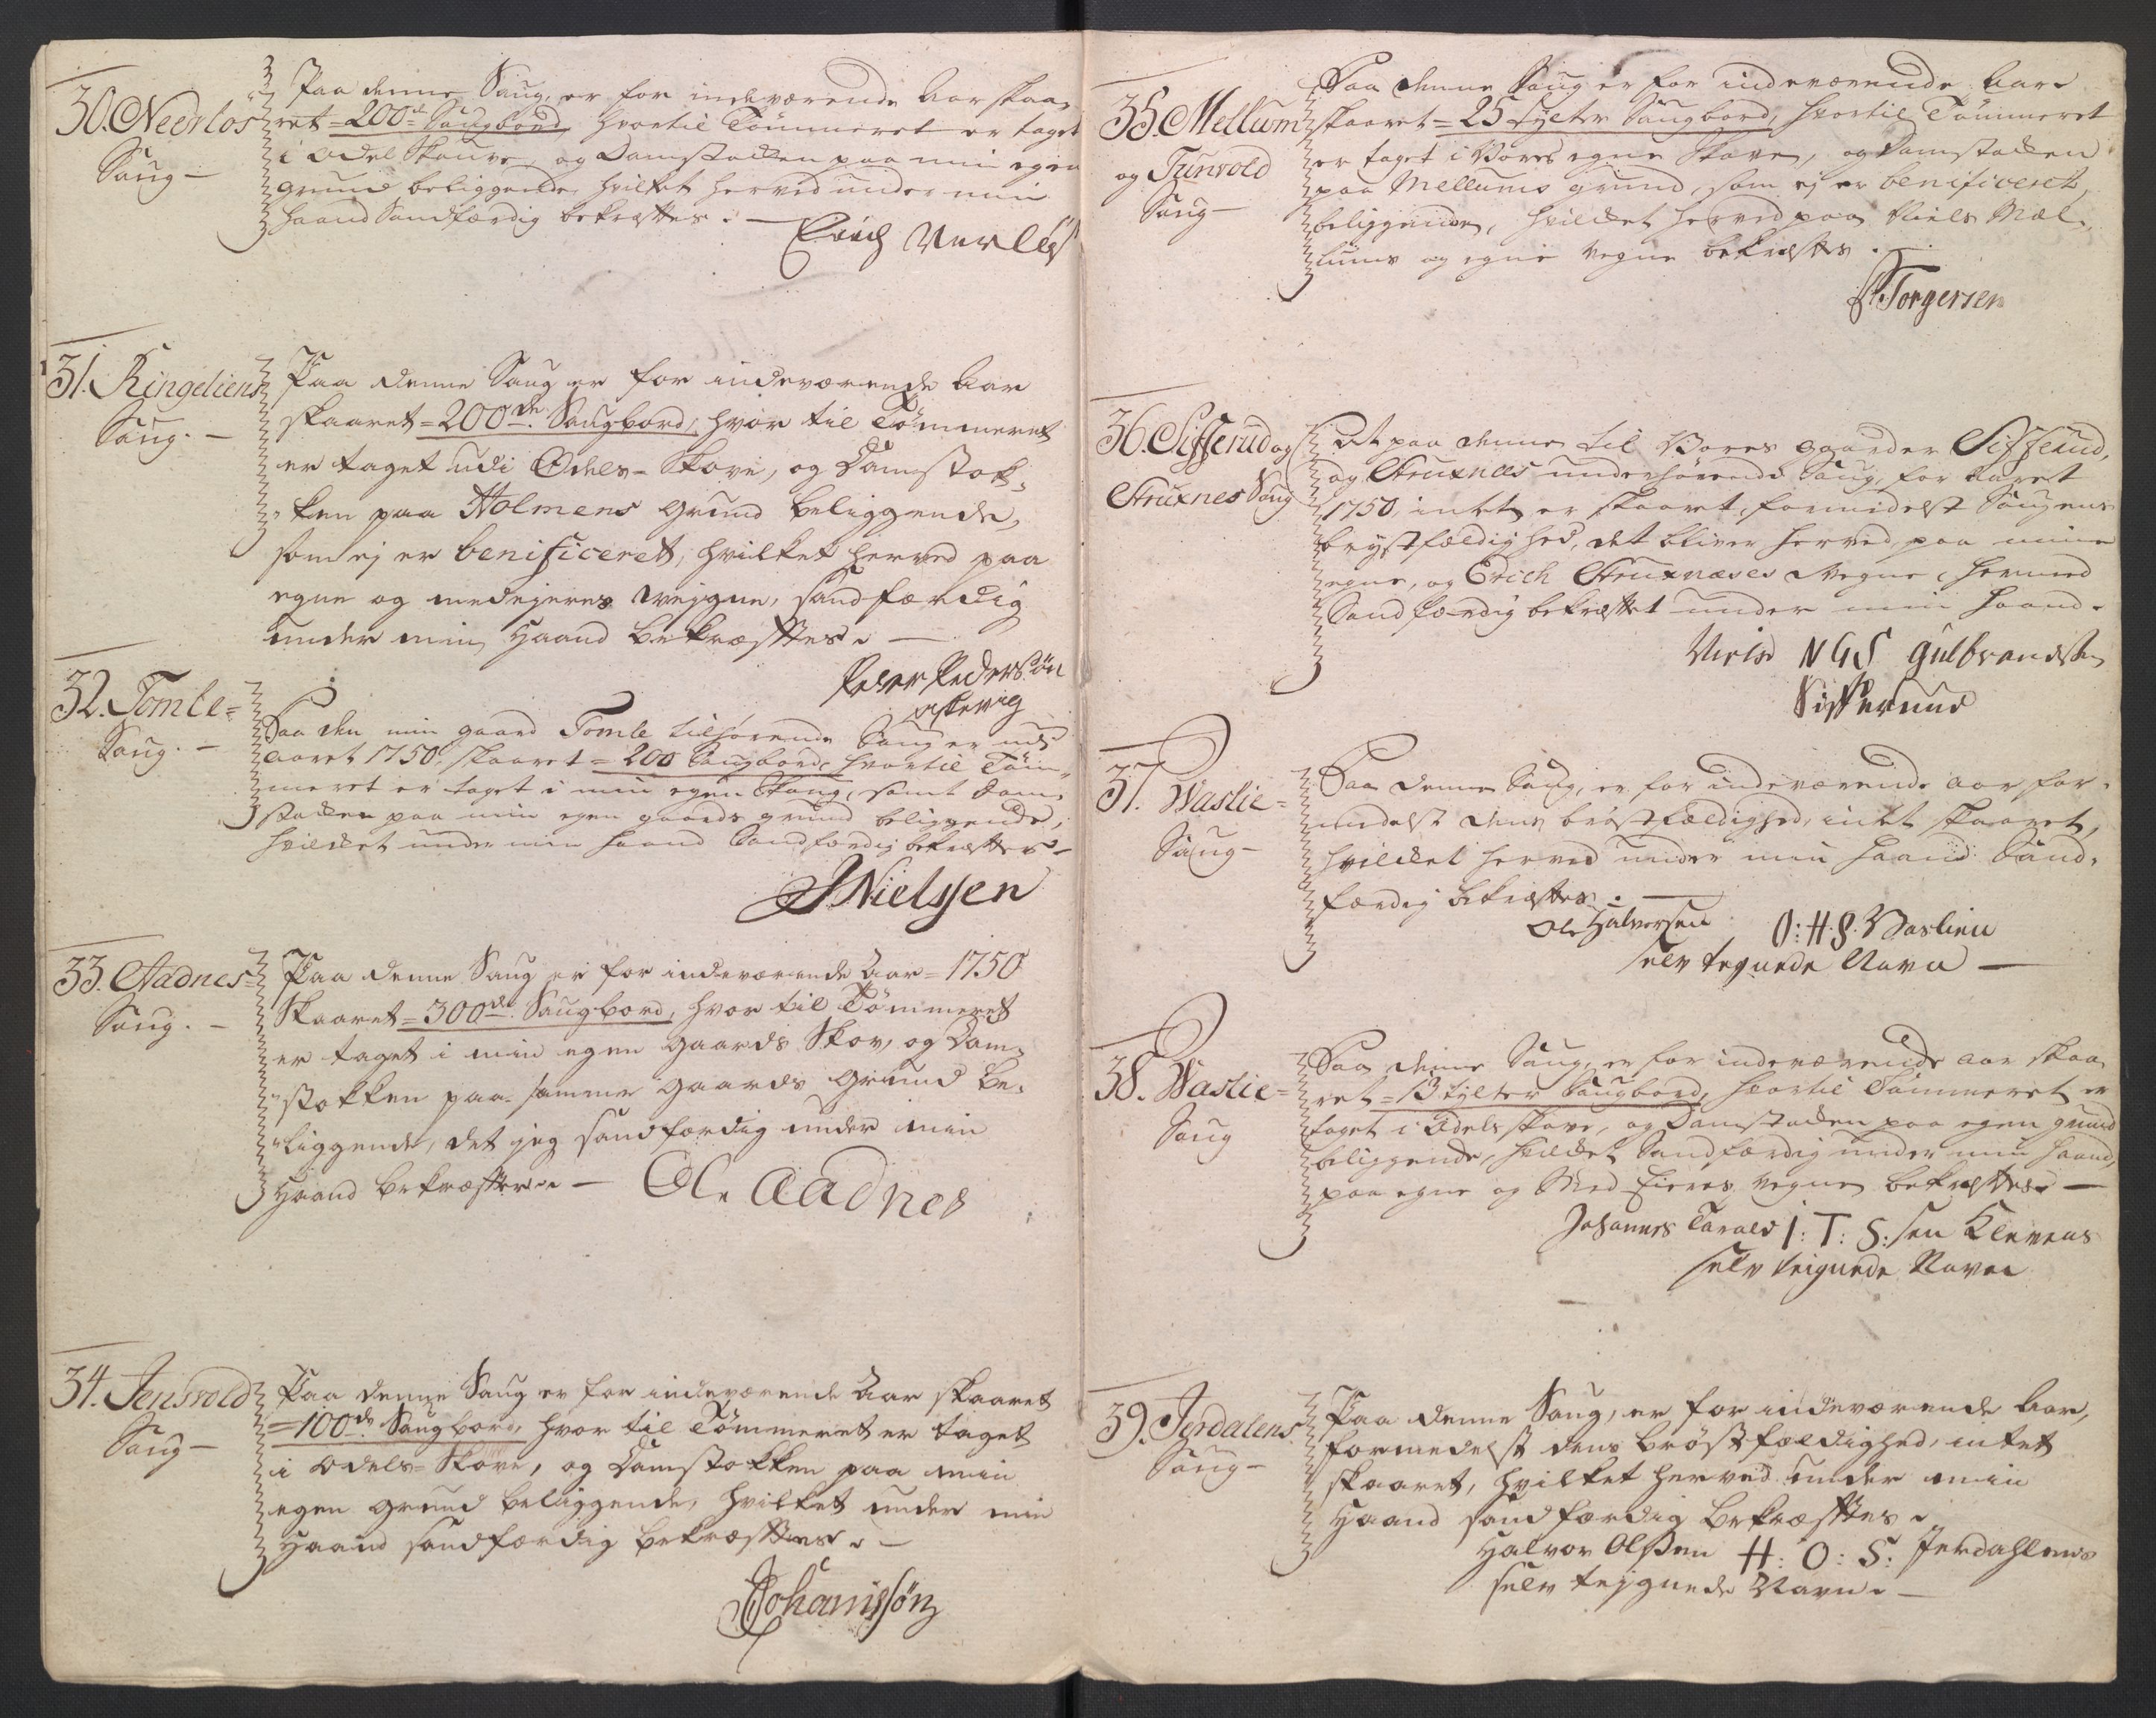 30. Neerlös
Saug —
Paa denne Saug, er for indeværende Aar skaa-
ret = 200de Saugbord, hvortil Tømmeret er taget
i Odel Skouve, og Damstocken paa min egen
grund beliggende, hvilket herved under min
Haand Sandfærdig bekræftes. —
Erich Nerlös
31. Ringeliens
Saug. —
Paa denne Saug er for indeværende Aar
skaaret = 200de Saugbord, hvor til Tømmeret
er taget udi Odels-Skove, og Damstok-
ken paa Holmens Grund beliggende,
som ej er benificeret, hvilket herved paa
egne og medejeres vejgne, sandfærdig
under min Haand bekræftes. —
Peder Pedersøn
Askevig
32. Tomle-
Saug. —
Paa den min gaard Tomle tilhørende Saug er udi
aaret 1750, skaaret = 200 Saugbord, hvortil Töm-
meret er taget i min egen Skoug, samt Dam-
stocken paa min egen gaards grund beliggende,
hvilcket under min Haand Sandfærdig bekræftes —
JNielssen
33. Aadnes-
Saug. —
Paa denne Saug er for indeværende Aar = 1750
Skaaret = 300de Saugbord, hvor til Tømmeret
er taget i min egen Gaards Skov, og Dam-
stokken paa samme Gaards Grund be-
liggende, det jeg sandfærdig under min
Haand bekræfter. —
Ole Aadnes
34. Jensvold
Saug —
Paa denne Saug er for indeværende Aar skaaret
= 100de Saugbord, hvor til Tømmeret er taget
i Odels-Skove, og Damstokken paa min
egen Grund beliggende, hvilket under min
Haand sandfærdig bekræftes. —
Johanissøn
35. Mellum
og Tunvold
Saug —
Paa denne Saug er for indeværende Aar
skaaret = 25 tylter Saugbord, hvortil Tömmeret
er taget i Vores egne Skove, og Damstocken
paa Mellums grund, som ej er benificeret,
beliggende, hvilcket herved paa Niels Mæl-
lums og egne vegne bekræftes.
Torgersen
36. Sifferud og
Struxnes Saug
At paa denne til Vores gaarder Sifferud,
og Struxnæs underhørende Saug, for Aaret
1750, intet er skaaret, formedelst Saugens
bröstfældighed, det bliver herved, paa mine
egne, og Erich Struxnæses Vegne, hermed
Sandfærdig bekræftet under min Haand.
Niels NGS Gulbrandsen
Sifferuud
37. Waslie-
Saug —
Paa denne Saug, er for indeværende aar for-
medelst dens bröstfældighed, intet skaaret,
hvilcket herved under min Haand Sand-
færdig bekræftes. —
Ole Halvorsen O: H: S: Vaslien
selv tegnede Navn —
38. Waslie-
Saug
Paa denne Saug, er for indeværende aar skaa-
ret = 13 tylter Saugbord, hvortil Tömmeret er
taget i Odels skove, og Damstocken paa egen grund
beliggende, hvilcket Sandfærdig under min Haand,
paa egne og Med Eieres vegne bekræftes. —
Johannes Tarald I: T: S: sen Klevens
selv teignede Navn
39. Jerdalens
Saug —
Paa denne Saug, er for indeværende Aar,
formedelst dens brøstfældighed, intet
skaaret, hvilket herved under min
Haand sandfærdig bekræftes.
Halvor Olssen H: O: S: Jerdahlens
selv tejgnede Navn. —